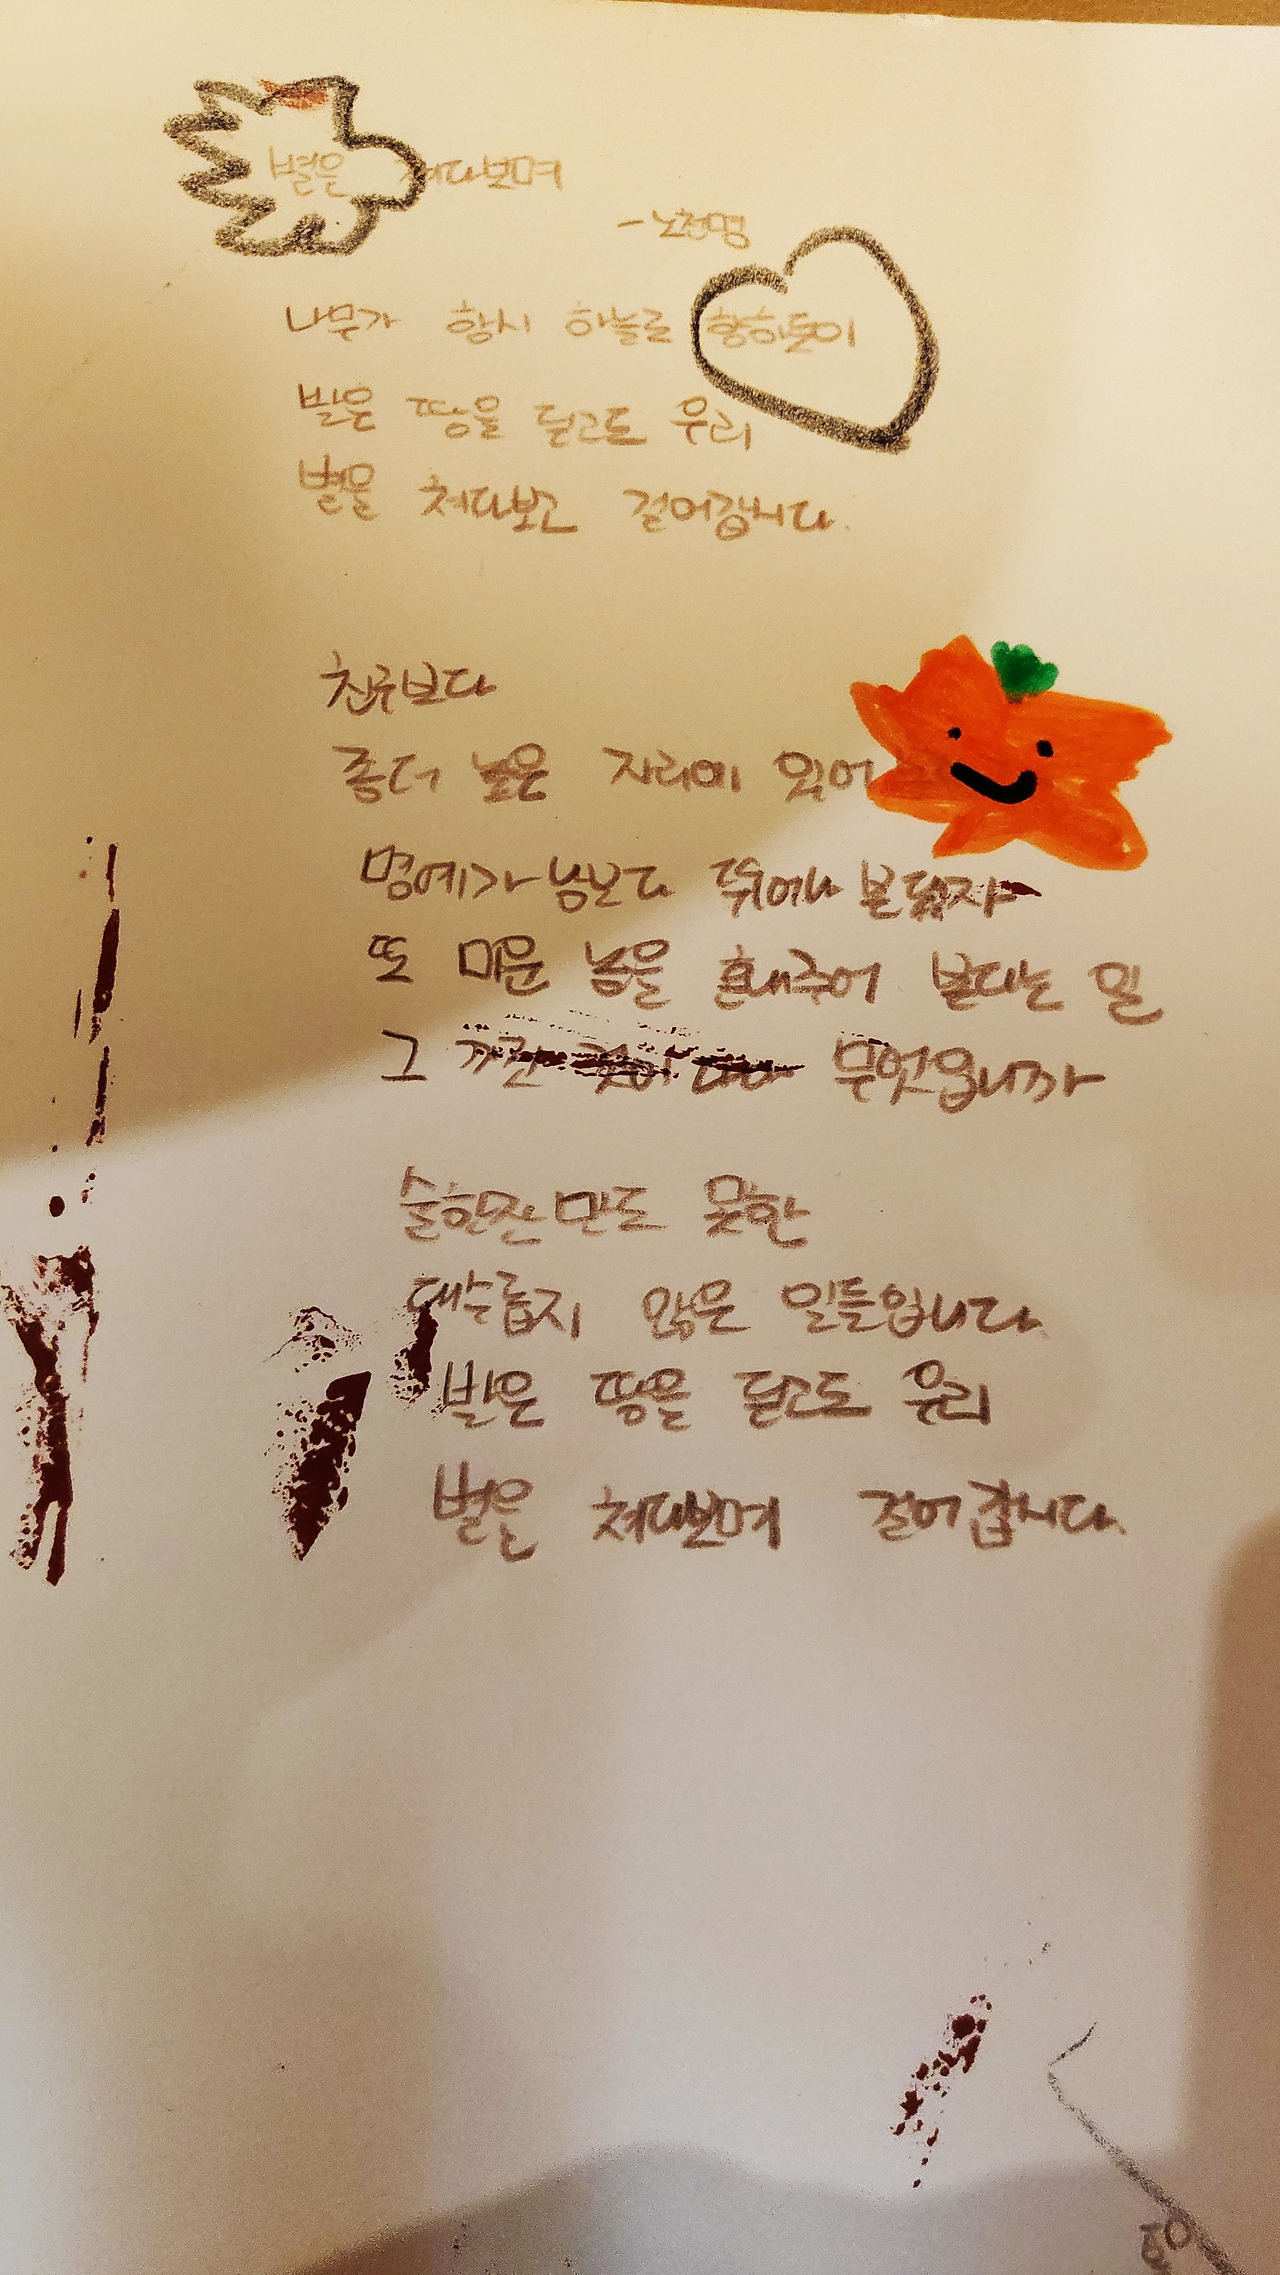 별을 쳐다보며
- 노천명
나무가 항시 하늘로 향하듯이
발은 땅을 딛고도 우리
별을 쳐다보고 걸어갑시다.
친구보다
좀더 높은 자리에 있어
명예가 남보다 뛰어나 본댔자
또 미운 놈을 혼내주어 본다는 일
그 까짓 것이 무엇입니까
술한잔 만도 못한
대수롭지 않은 일들입니다.
발은 땅을 딛고도 우리
별을 쳐다보며 걸어 갑시다.